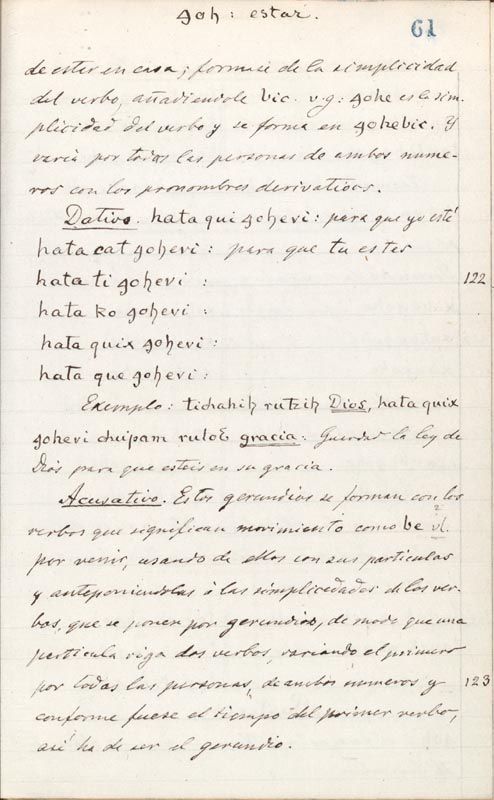 goh : estar.
61
de estar en casa; formase de la simplicidad
del verbo, añadiendole bic. v.g: gohe es la sim-
plicidad del verbo y se forma en gohebic. Y
varia por todas las personas de ambos nume-
ros con los pronombres derivativos.
Dativo. hata qui gohevi : para que yo esté
hata cat gohevi : para que tu estes
hata ti gohevi :
122
hata ko gohevi :
hata quix gohevi :
hata que gohevi :
Exemplo : tichahih rutzih Dios, hata quix
gohevi chupam ruloE gracia : Guardad la ley de
Dios para que esteis en su gracia.
Acusativo. Estos gerundios se forman con los
verbos que significan movimiento como be vl.
por venir, usando de ellos con sus particulas
y anteponiendolas á las simplicedades de los ver-
bos, que se ponen por gerundios, de modo que una
particula riga dos verbos, variando el primero
por todas las personas, de ambos numeros y
123
conforme fuese el tiempo del primer verbo,
asi ha de ser el gerundio.